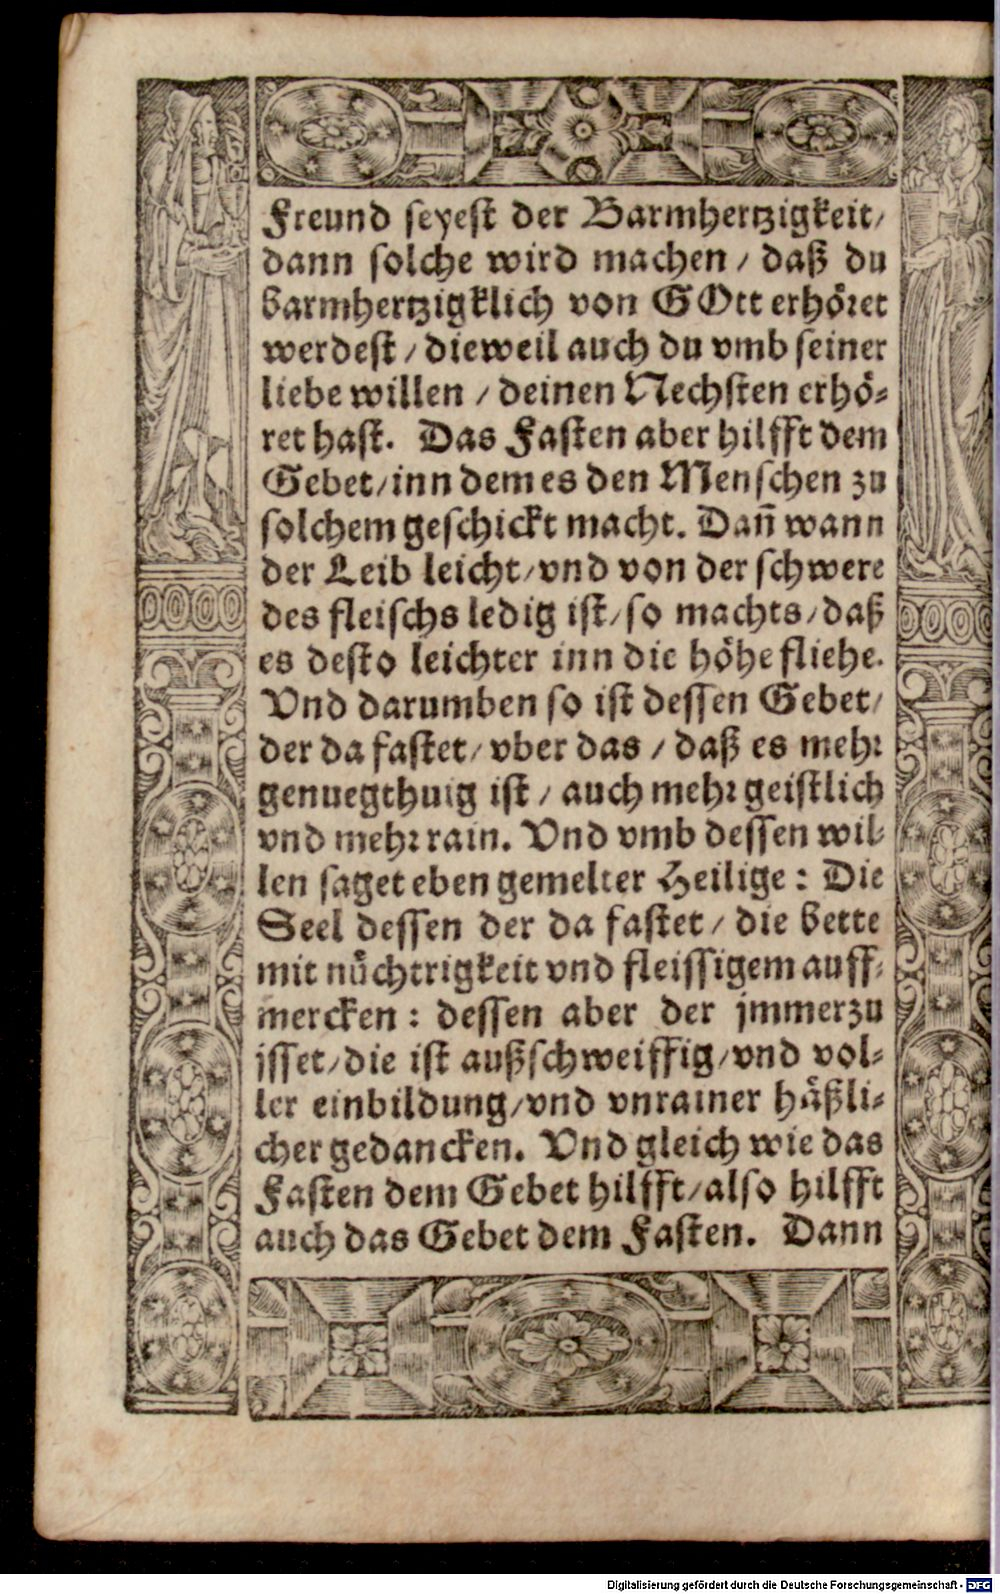 Freund seyest der Barmhertzigkeit/
dann solche wird machen / daß du
barmhertzigklich von GOtt erhöret
werdest / dieweil auch du vmb seiner
liebe willen / deinen Nechsten erhö-
ret hast. Das Fasten aber hilfft dem
Gebet/ inn dem es den Menschen zu
solchem geschickt macht. Dañ wann
der Leib leicht/ vnd von der schwere
des fleischs ledig ist/ so machts/ daß
es desto leichter inn die höhe fliehe.
Vnd darumben so ist dessen Gebet/
der da fastet/ vber das / daß es mehr
genuegthuig ist / auch mehr geistlich
vnd mehr rain. Vnd vmb dessen wil-
len saget eben gemelter Heilige: Die
Seel dessen der da fastet/ die bette
mit nüchtrigkeit vnd fleissigem auff-
mercken: dessen aber der jmmerzu
jsset/ die ist außschweiffig/ vnd vol-
ler einbildung/ vnd vnrainer häßli-
cher gedancken. Vnd gleich wie das
Fasten dem Gebet hilfft/ also hilfft
auch das Gebet dem Fasten. Dann
Digitalisierung gefördert durch die Deutsche Forschungsgemeinschaft - DFG